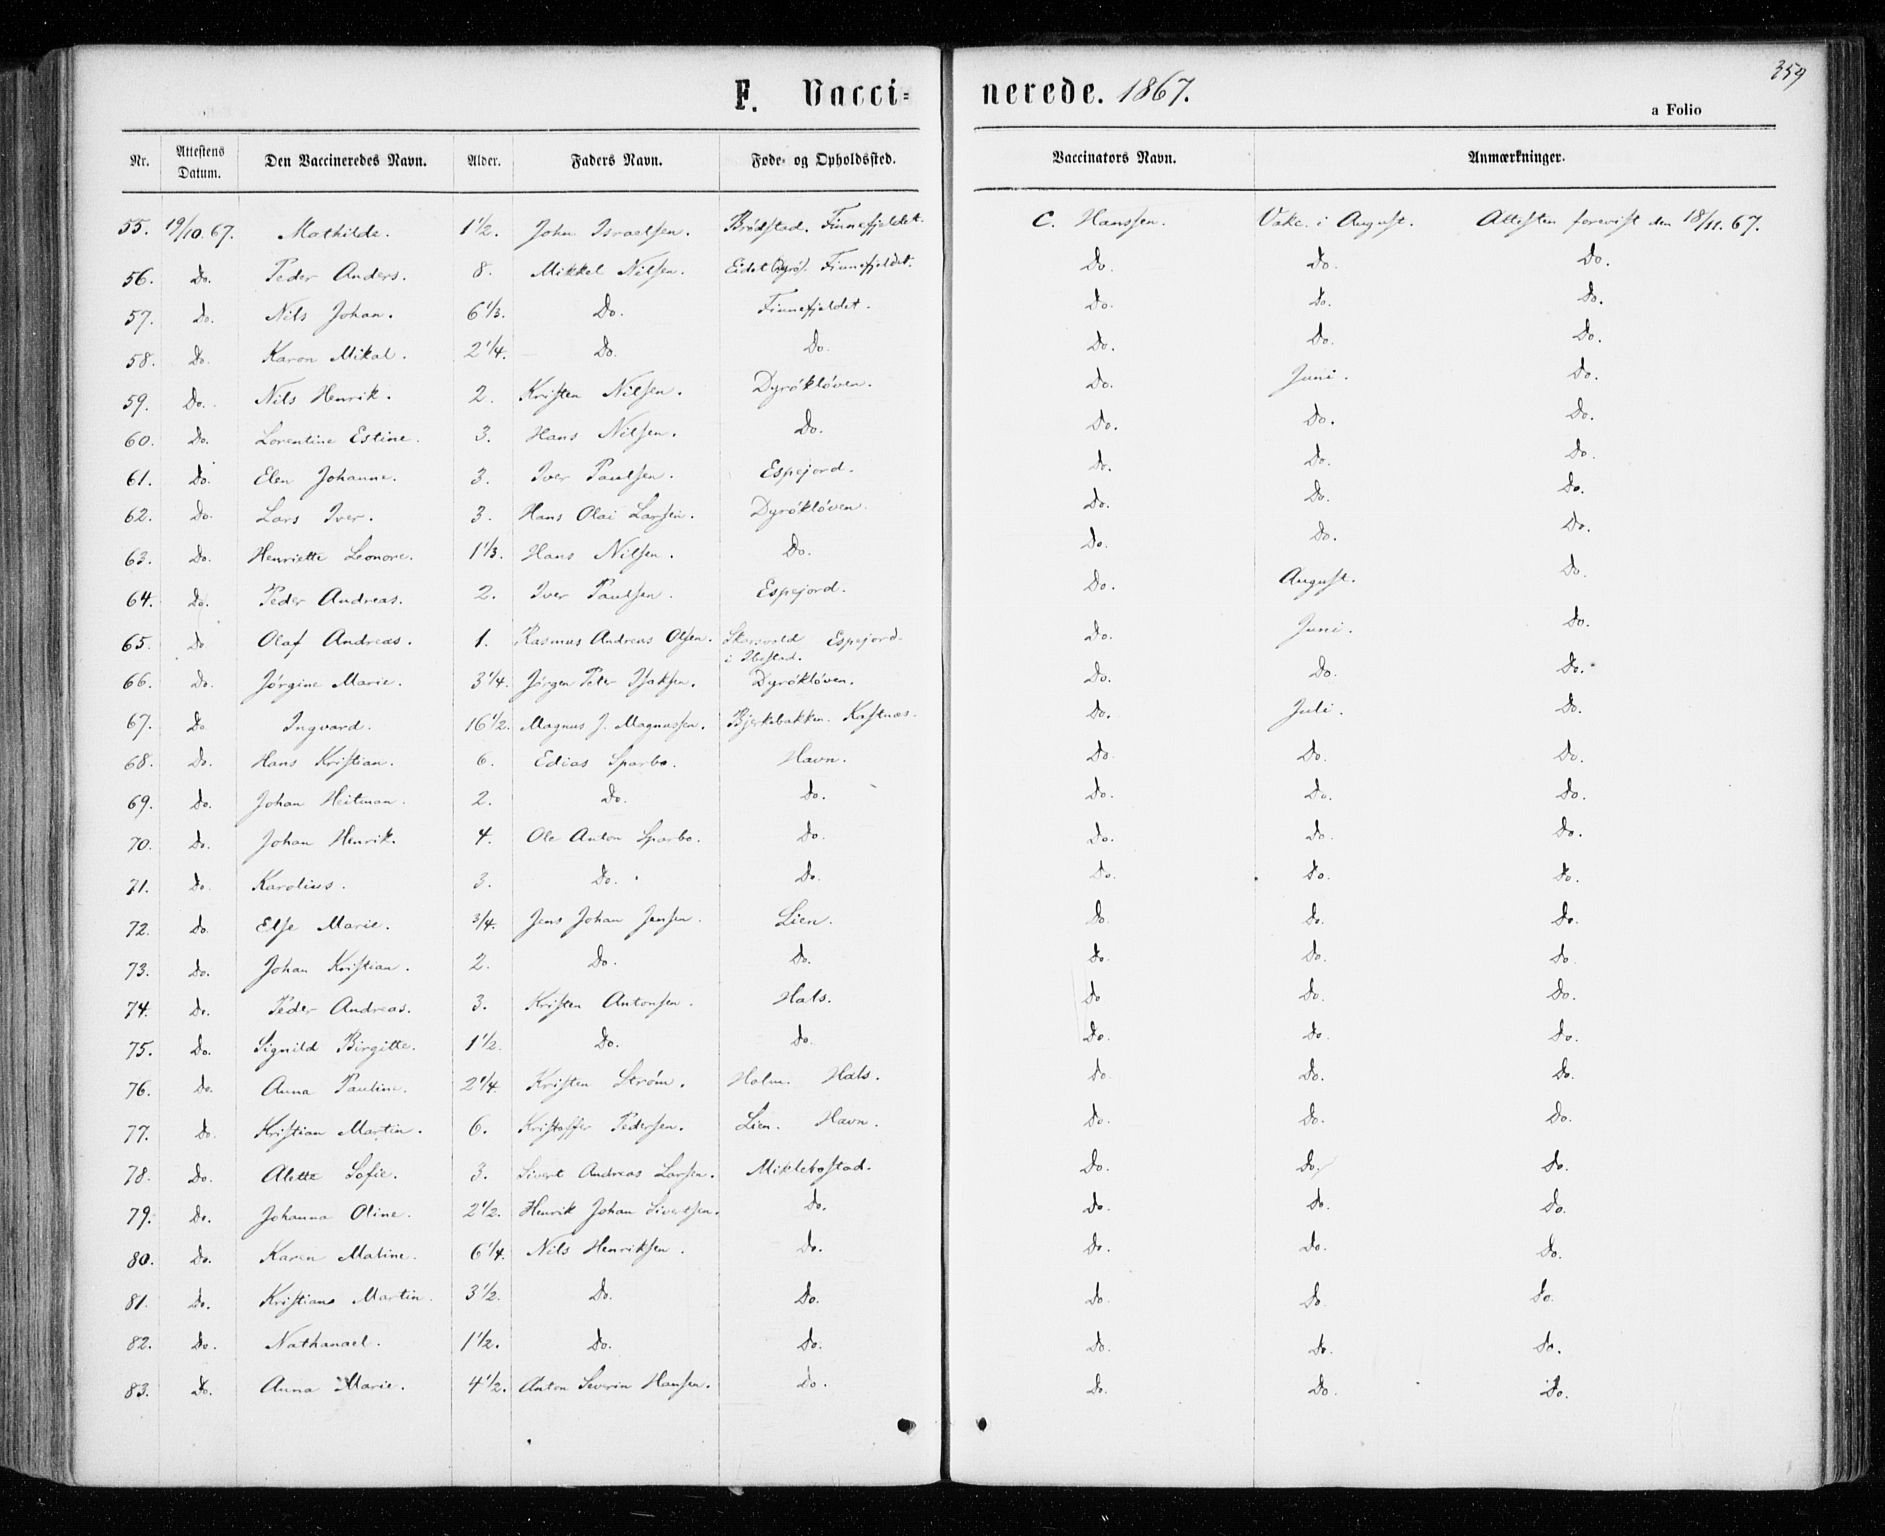 359
F. Vacci=nerede. 1867.
a Folio
Nr. Attestens Datum. Den Vaccineredes Navn. Alder. Faders Navn. Føde- og Opholdssted. Vaccinators Navn. Anmærkninger.
55. 19/10.67. Mathilde. 1 1/2. John Israelsen. Brødstad. Finnefjeldet. C. Hanssen. Vakc. i August. Attesten forevist den 18/11.67.
56. Do. Peder Anders. 8. Mikkel Nilsen. Eidet Dyrø. Finnefjeldet. Do. Do. Do.
57. Do. Nils Johan. 6 1/3. Do. Finnefjeldet. Do. Do. Do.
58. Do. Karon Mikal. 2 1/4. Do. Do. Do. Do. Do.
59. Do. Nils Henrik. 2. Kristen Nilsen. Dyrøkløven. Do. Juni. Do.
60. Do. Lorentine Estine. 3. Hans Nilsen. Do. Do. Do. Do.
61. Do. Elen Johanne. 3. Iver Paulsen. Espejord. Do. Do. Do.
62. Do. Lars Iver. 3. Hans Olai Larsen. Dyrøkløven. Do. Do. Do.
63. Do. Henriette Leonore. 1 1/3. Hans Nilsen. Do. Do. Do. Do.
64. Do. Peder Andreas. 2. Iver Paulsen. Espejord. Do. August. Do.
65. Do Olaf Andreas. 1. Rasmus Andreas Olsen. Espejord. Do. Juni. Do.
i Ibestad.
66. Do. Jørgine Marie. 3 1/4. Jørgen Peter Isaksen. Dyrøkløven. Do. Do. Do.
67. Do Ingvard. 16 1/2. Magnus J. Magnussen. Bjerkebakken. Kastnæs. Do. Juli. Do.
68. Do. Hans Kristian. 6. Edias Sparbo. Havn. Do. Do. Do.
69. Do. Johan Heitman. 2. Do. Do. Do. Do. Do.
70. Do. Johan Henrik. 4. Ole Anton Sparbo. Do. Do. Do. Do.
71. Do. Karolius. 3. Do. Do. Do. Do. Do.
72. Do. Else Marie. 3/4. Jens Johan Jensen. Lien. Do. Do. Do.
73. Do. Johan Kristian. 2. Do. Do. Do. Do. Do.
74. Do. Peder Andreas. 3. Kristen Antonsen. Hals. Do Do. Do.
75. Do. Signild Birgitte. 1 1/2. Do. Do. Do. Do. Do.
76. Do. Anna Pauline. 2 1/4. Kristen Strøm. Holm. Hals. Do. Do. Do.
77. Do. Kristian Martin. 6. Kristoffer Pedersen. Lien. Havn. Do. Do. Do.
78. Do. Alette Sofie. 3. Sivert Andreas Larsen. Miklebostad. Do. Do. Do.
79. Do. Johanna Oline. 2 1/2. Henrik Johan Sivertsen. Do. Do. Do. Do.
80. Do. Karen Maline. 6 1/4. Nils Henriksen. Do. Do. Do. Do.
81. Do. Kristians Martin. 3 1/2. Do. Do. Do. Do. Do.
82. Do. Nathanael. 1 1/2. Do. Do. Do. Do. Do.
83. Do. Anna Marie. 4 1/2. Anton Severin Hansen. Do. Do. Do. Do.